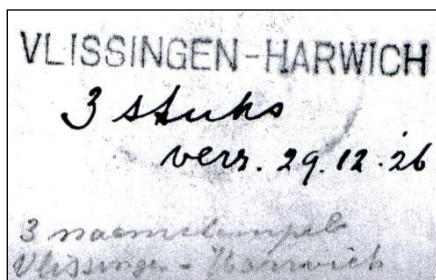 VLISSINGEN-HARWICH
3 stuks
verz. 29.12.26
3 naamstempels
Vlissingen - Harwich